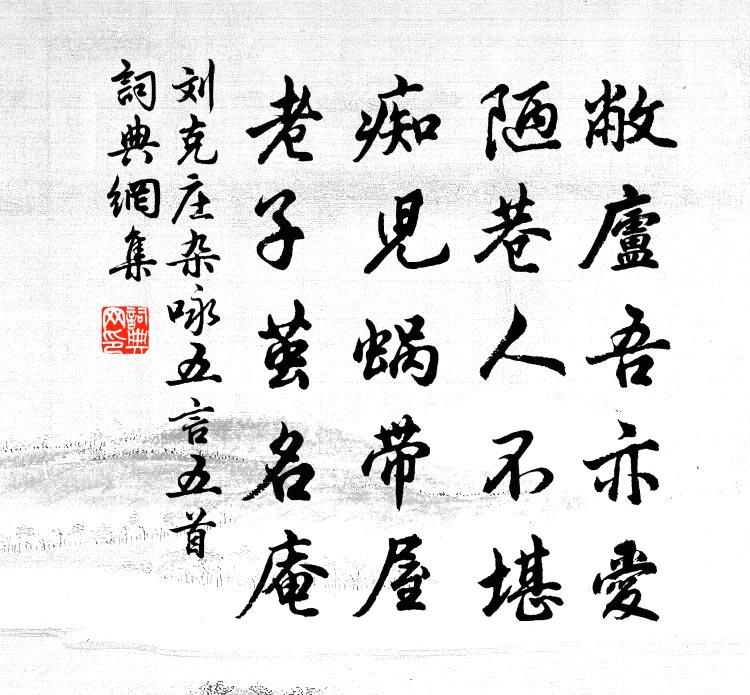 敝廬吾亦愛
陋巷人不堪
痴児蝸帶屋
老子茧名庵
刘克庄杂咏五言五首
詞典網集
詞典网印